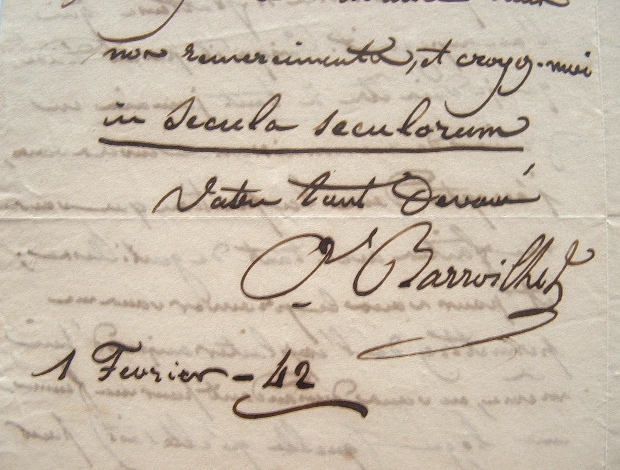 nos remerciments, et croyez-moi
in secula seculorum
Votre tout Devoué
Barroilhet
1 Fevrier - 42